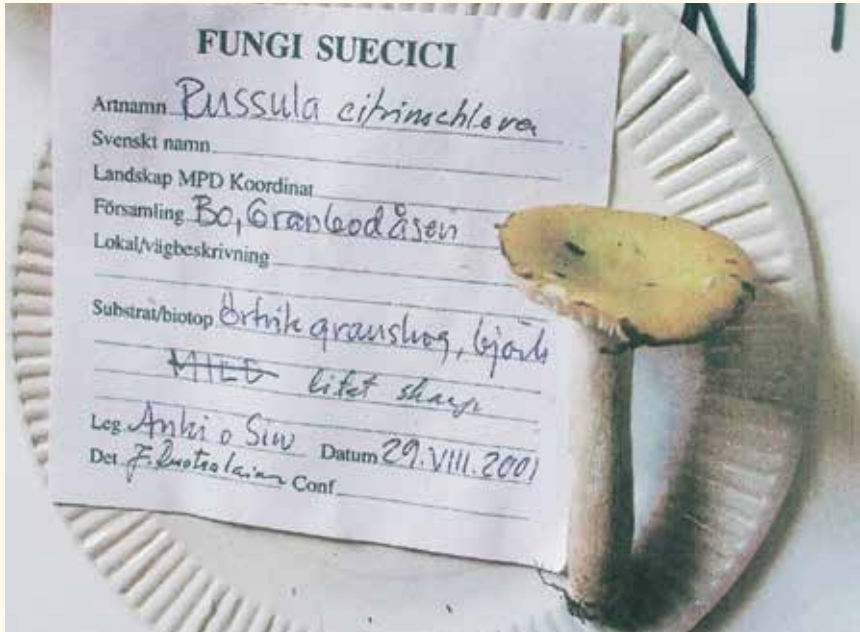 FUNGI SUECICI
Artnamn Russula citrinochlora
Svenskt namn
Landskap MPD Koordinat
Församling Bo, Granbodåsen
Lokal/vägbeskrivning
Substrat/biotop Örtrik granskog, björk
MILD litet skarp
Leg Anki o Siw Datum 29.VIII.2001
Det Conf